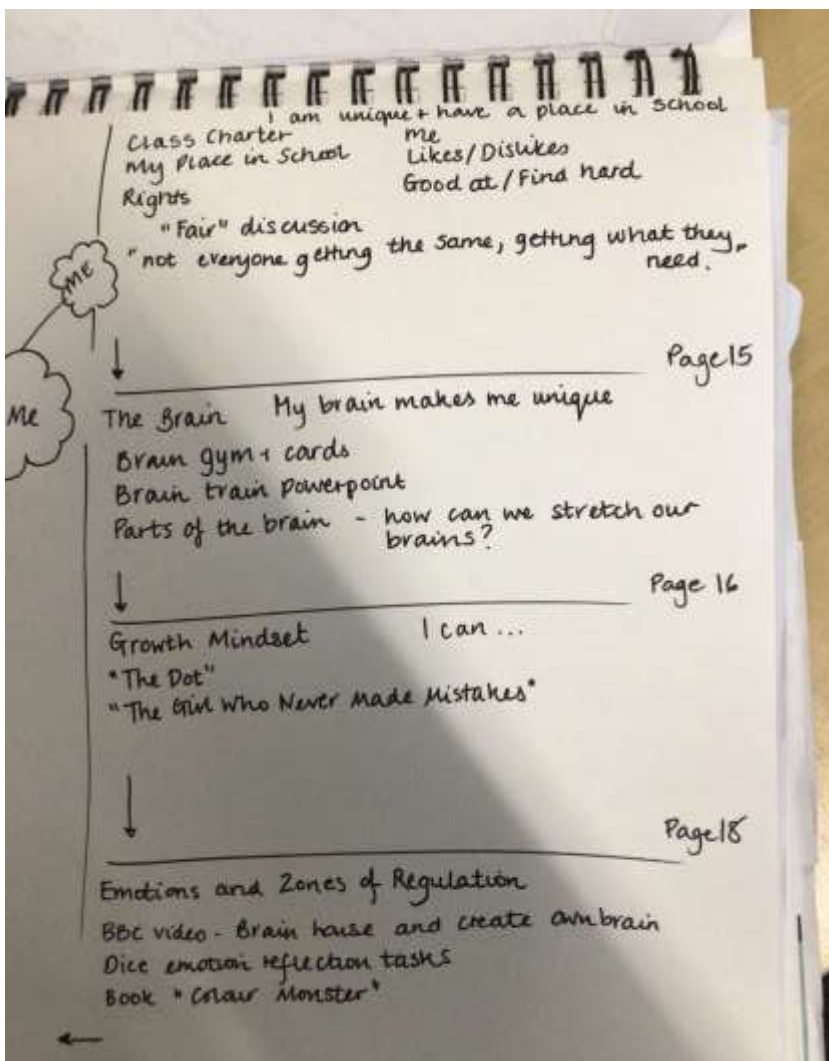 I am unique + have a place in school
Class Charter me
My Place in School Likes/Dislikes
Rights Good at/Find hard
"Fair" discussion
"not everyone getting the same, getting what they
need."
ME
Page 15
Me
The Brain My brain makes me unique
Brain gym + cards
Brain train powerpoint
Parts of the brain - how can we stretch our
brains?
Page 16
Growth Mindset I can ...
"The Dot"
"The Girl Who Never Made Mistakes"
Page 18
Emotions and Zones of Regulation
BBC video - Brain house and create own brain
Dice emotion reflection tasks
Book "Colour Monster"